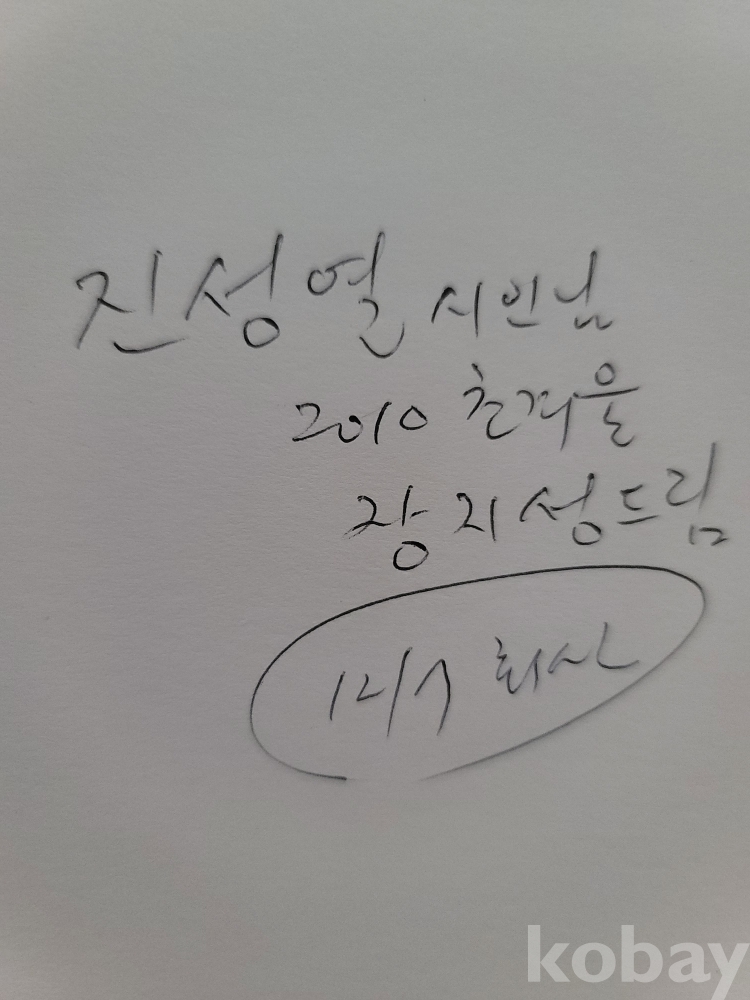 진성열 시인님
2010 초겨울
장지성드림
12/7 회신
kobay